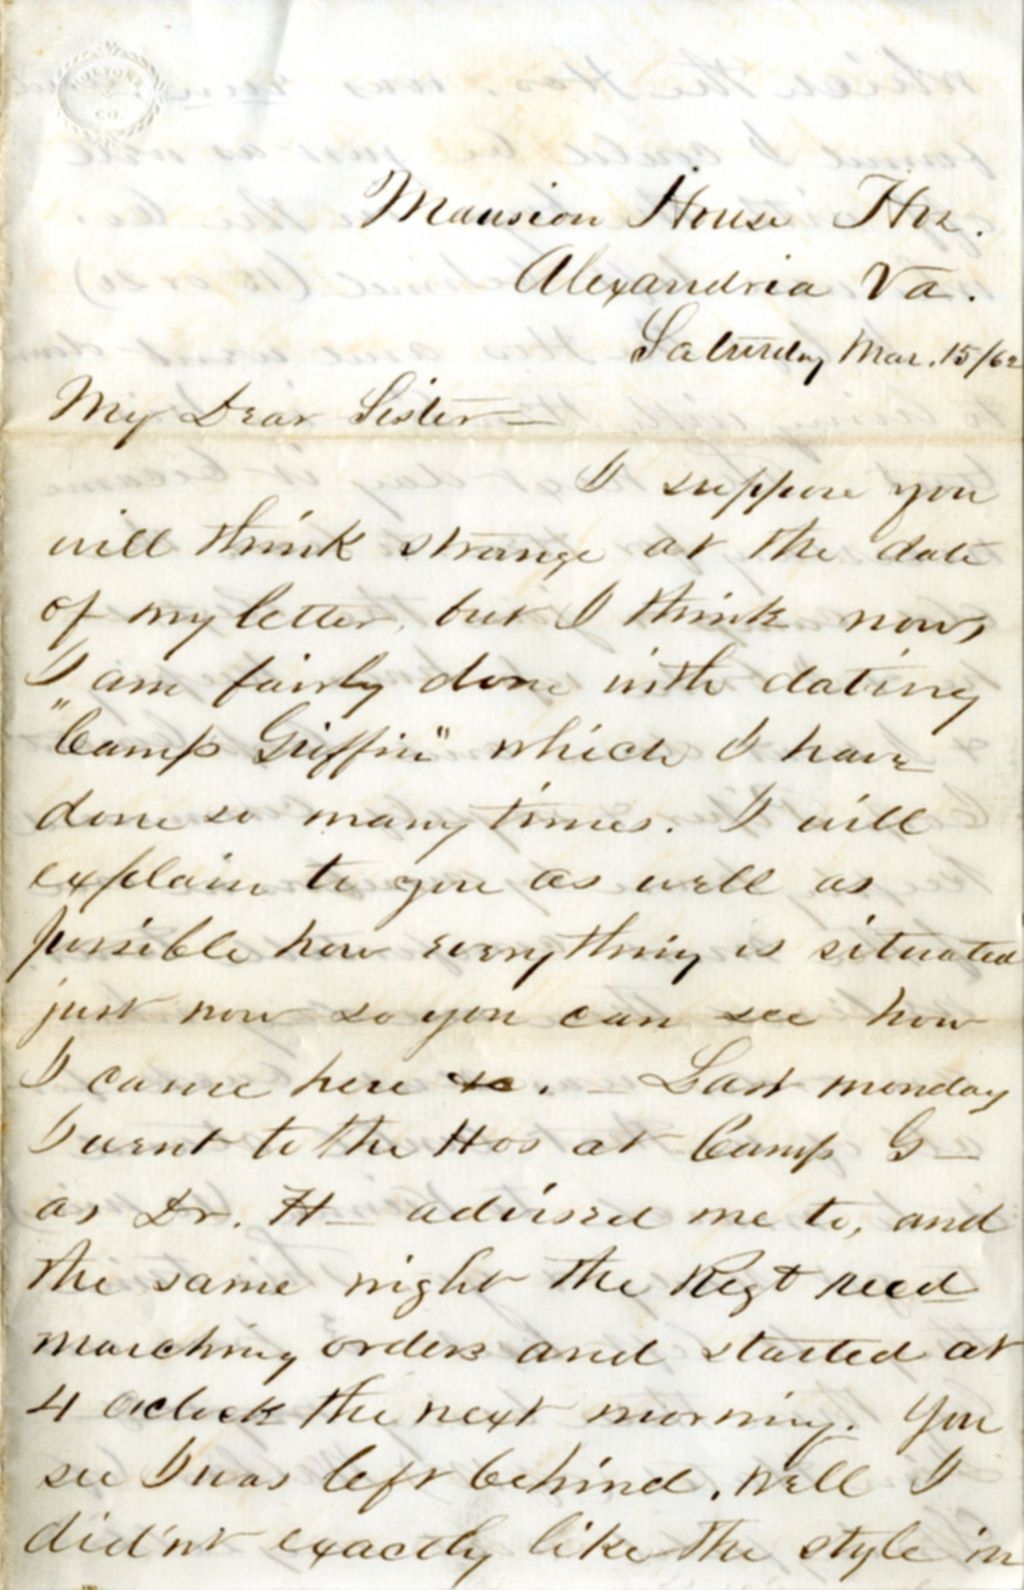 Mansion House Hos.
Alexandria Va.
Saturday Mar. 15/62
My Dear Sister—
I suppose you
will think strange at the date
of my letter, but I think now,
I am fairly done with dating
"Camp Griffin" which I have
done so many times. I will
explain to you as well as
possible how everything is situated
just now so you can see how
I came here &c. — Last monday
I went to the Hos at Camp G—
as Dr. H— advised me to, and
the same night the Regt recd
marching orders and started at
4 oclock the next morning. You
see I was left behind. Well I
did'nt exactly like the style in